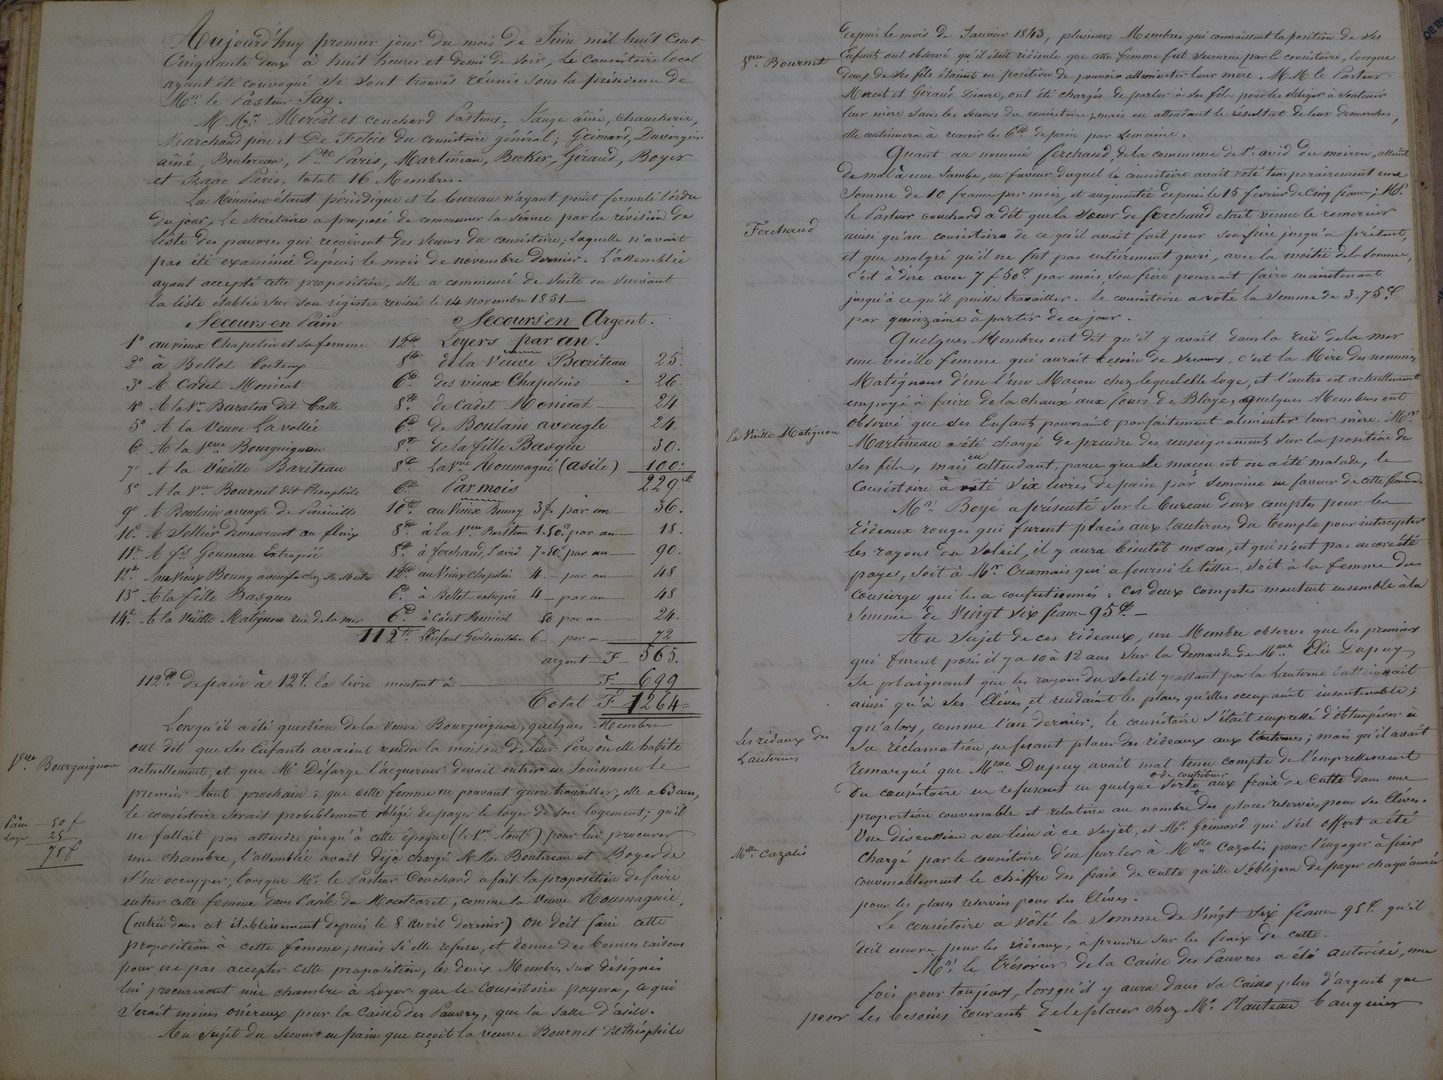 Aujourd'huy premier jour du mois de Juin mil huit cent
Cinquante deux à huit heures et demi du soir, Le Consistoire local
ayant été convoqué se sont trouvés réunis sous la présidence de
Mr. le Pasteur Fay.
M.Mrs. Hercat et Couchard Pasteurs. Jauge ainé, Chaucherie,
Marchand père et De Felice du consistoire général; Guimard, Duvergier
ainé, Boutereau, Paris, Martineau, Becker, Giraud, Boyer
et Isaac Paris, total 16 Membres.
La Réunion étant périodique et le bureau n'ayant point formulé l'ordre
du jour, Le Secrétaire a proposé de commencer la séance par la révision de
liste des pauvres qui reçoivent des secours du consistoire, laquelle n'avait
pas été examinée depuis le mois de novembre dernier. L'assemblée
ayant accepté cette proposition, elle a commencé de suite en suivant
la liste établie sur son registre révisé le 14 novembre 1851
Secours en Pain
Secours en Argent.
1° au vieux Chapelin et sa femme 12 Loyers par an.
2° à Bellot 8 de la Veuve Bariteau 25.
3° A Cadet Monicat 6 des vieux Chapelins 26
4° A la Ve. Baraton dit Calle 8 de Cadet Monicat 24
5° A la Veuve Lavollée 6 de Boulain aveugle 24.
6° A la Veuve Bourguignon 8 de la fille Basque 30.
7° A la Vieille Bariteau 8 La Veuve Roumagné (asile) 100.
8° A la Veuve Bournet dit Théophile 6 Par mois 229
9° A Boulain aveugle de 10 au Vieux Bunny 3f. par an 36.
10° A Tellier demeurant au 8 à la Veuve Bariteau 1.50 par an 18.
11° A Goumeau Estropié 8 à Ferchaud David 7.50 par an 90.
12° Au vieux Bunny aveugle 12 au Vieux Chapelin 4 par an 48
13° A la fille Basque 6 à Bellot estropié 4 par an 48
14° A la Vieille Matignon rue de la mer 6 à Cadet Monicat 50 par an 24.
112 6 par an 72
argent F 565.
112 de pain à 12c. la livre montent à F 699
Total F 1264
Lorsqu'il a été question de la Veuve Bourguignon, quelques Membres
Veuve Bourguignon
ont dit que ses Enfants avaient vendu la maison de leur Père où elle habite
actuellement, et que Mr. Défarge l'acquéreur devait entrer en Jouissance le
premier Août prochain; que cette femme ne pouvant guère travailler, elle a 63 ans,
le consistoire serait probablement obligé de payer le loyer de son logement; qu'il
Pain 50f
Loyer 25
75f
ne fallait pas attendre jusqu'à cette époque (le 1er Août) pour lui procurer
une chambre, l'assemblée avait déjà chargé M.Mrs. Boutereau et Boyer de
s'en occuper, lorsque Mr. le Pasteur Couchard a fait la proposition de faire
entrer cette femme dans l'asile de, comme la Veuve Roumagné,
(entrée dans cet établissement depuis le 8 avril dernier) On doit faire cette
proposition à cette femme; mais si elle refuse, et donne des bonnes raisons
pour ne pas accepter cette proposition, les deux Membres sus désignés
lui procureront une chambre à Loyer que le Consistoire payera, ce qui
serait moins onéreux pour la Caisse des Pauvres, que la Salle d'asile.
Au Sujet du Secours en pain que reçoit la veuve Bournet dit Théophile
depuis le mois de Janvier 1843, plusieurs Membres qui connaissent la position de ses
Veuve Bournet
Enfants ont observé qu'il était ridicule que cette femme fut secourue par le consistoire, lorsque
deux de ses fils étaient en position de pouvoir alimenter leur mère. M.M. le Pasteur
Hercat et Giraud Diacre, ont été chargés de parler à ses fils pour les obliger à soutenir
leur mère sans les secours du consistoire, mais en attendant le résultat de leur démarches,
elle continuera à recevoir les 6 de pain par semaine.
Quant au nommé Ferchaud, de la commune de atteint
de mal à une Jambe, en faveur duquel le consistoire avait voté temporairement une
Somme de 10 francs par mois, et augmentée depuis le 15 février de cinq francs; Mr.
le Pasteur Couchard a dit que la Sœur de Ferchaud était venue le remercier
Ferchaud
ainsi qu'au consistoire de ce qu'il avait fait pour son frère jusqu'à présent,
et que malgré qu'il ne fut pas entièrement guéri, avec la moitié de la somme,
c'est à dire avec 7f. 50c. par mois, son frère pourrait faire maintenant
jusqu'à ce qu'il puisse travailler. Le consistoire a voté la somme de 3.75c.
par quinzaine à partir de ce jour.
Quelques Membres ont dit qu'il y avait dans la rue de la mer
une vieille femme qui aurait besoin de Secours, c'est la Mère des nommés
Matignons d'un l'un Maçon chez lequel elle loge, et l'autre est actuellement
employé à faire de la chaux aux fours de Blaye, quelques Membres ont
observé que ses Enfants pouvaient parfaitement alimenter leur mère. Mr.
La Vieille Matignon
Martineau a été chargé de prendre des renseignements sur la position de
ses fils, mais en attendant, parce que le maçon est ou a été malade, le
Consistoire à voté six livres de pain par semaine en faveur de cette femme.
Mr. Boyé a présenté sur le bureau deux comptes pour les
rideaux rouges qui furent placés aux lanternes du temple pour intercepter
les rayons du soleil, il y aura bientôt un an, et qui n'ont pas encore été
payés, soit à Mr. Cramais qui a fourni le tissu, soit à la femme du
concierge qui les a confectionnés: ces deux comptes montent ensemble à la
somme de Vingt Six francs 95c.
Au sujet de ces rideaux, un Membre observe que les premiers
qui furent posés il y a 10 à 12 ans sur la demande de Mme. Elie Dupuy
se plaignant que les rayons du Soleil passant par la lanterne l'atteignait
ainsi qu'à ses Elèves et rendaient les places qu'elles occupaient insoutenable;
qu'alors, comme l'an dernier, le consistoire s'était empressé d'obtempérer à
Les rideaux des
Lanternes
sa réclamation, en fesant placer des rideaux aux lanternes; mais qu'il avait
remarqué que Mme. Dupuy avait mal tenu compte de l'empressement
du consistoire en refusant en quelque sorte de contribuer aux frais de Culte dans une
proportion convenable et relative au nombre des places réservées pour ses Elèves.
Une discussion a eu lieu à ce sujet, et Mr. Guimard qui s'est offert a été
Melle. Cazalis
chargé par le consistoire d'en parler à Melle. Cazalis pour l'engager à fixer
convenablement le chiffre des frais de culte qu'elle s'obligera de payer chaque année
pour les places réservées pour ses Elèves.
Le consistoire a voté la somme de Vingt six francs 95c. qu'il
doit encore pour les rideaux, à prendre sur les frais de culte.
Mr. le Trésorier de la Caisse des Pauvres a été autorisé, une
fois pour toujours, lorsqu'il y aura dans sa Caisse plus d'argent que
pour les besoins courants de le placer chez Mr. Planteau banquier